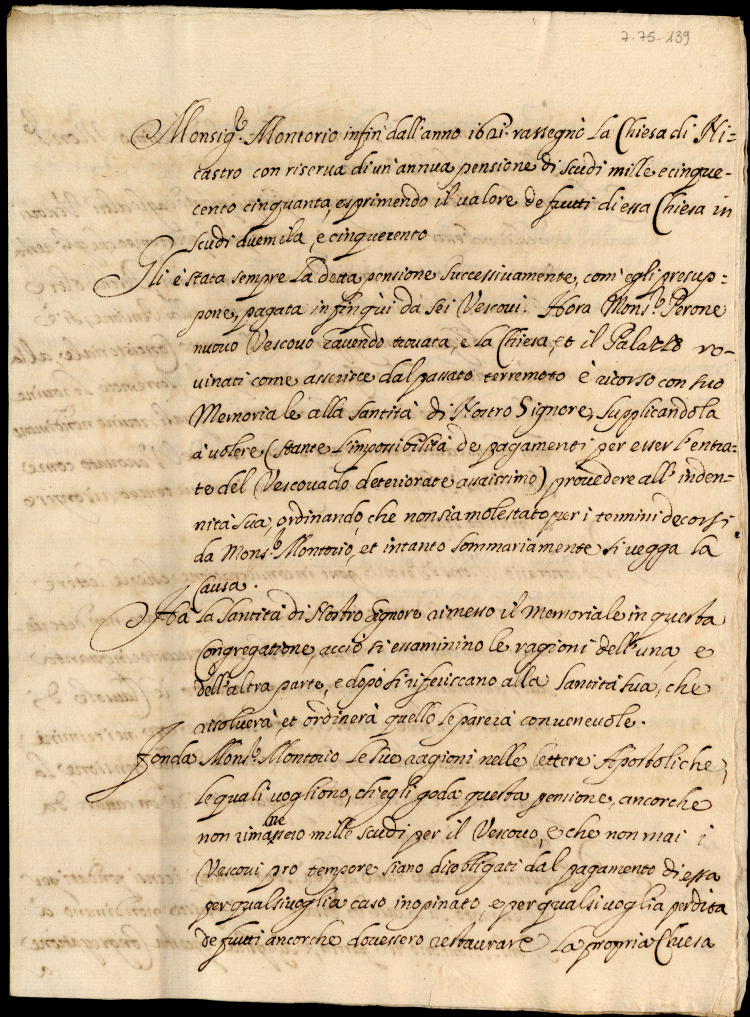 7-75-139
Monsig.r Montorio infin dall'anno 1621. rassegnò la Chiesa di Ni=
castro con riserva di un'annua pensione di scudi mille e cinque=
cento cinquanta, esprimendo il valore de frutti di essa Chiesa in
scudi duemila, e cinquecento
Gli è stata sempre la detta pensione successivamente, com'egli presup=
pone, pagata infin quì da sei Vescovi. Hora Mons.r Perone
nuovo Vescovo havendo trovata, e la Chiesa, et il Palazzo ro=
vinati come asserisce dal passato terremoto è ricorso con suo
Memoriale alla Santità di Nostro Signore, supplicandola
à volere (stante l'impossibilità de pagamenti per esser l'entra=
te del Vescovado deteriorate assaissimo) provedere all'inden=
nità sua, ordinando, che non sia molestato per i termini decorsi
da Mons.r Montorio, et intanto sommariamente si vegga la
causa.
Ha la Santità di Nostro Signore rimesso il Memoriale in questa
Congregatione, acciò si essaminino le ragioni dell'una, e
dell'altra parte, e dopò si riferiscano alla Santità sua, che
risolverà, et ordinerà quello le parerà convenevole.
Fonda Mons.r Montorio le sue ragioni nelle lettere Apostoliche,
le quali vogliono, ch'egli goda questa pensione, ancorche
non rimanessero mille scudi per il Vescovo, e che non mai i
Vescovi pro tempore siano disobligati dal pagamento di essa
per qualsivoglia caso inopinato, e per qualsivoglia perdita
de frutti ancorche dovessero restaurare la propria Chiesa